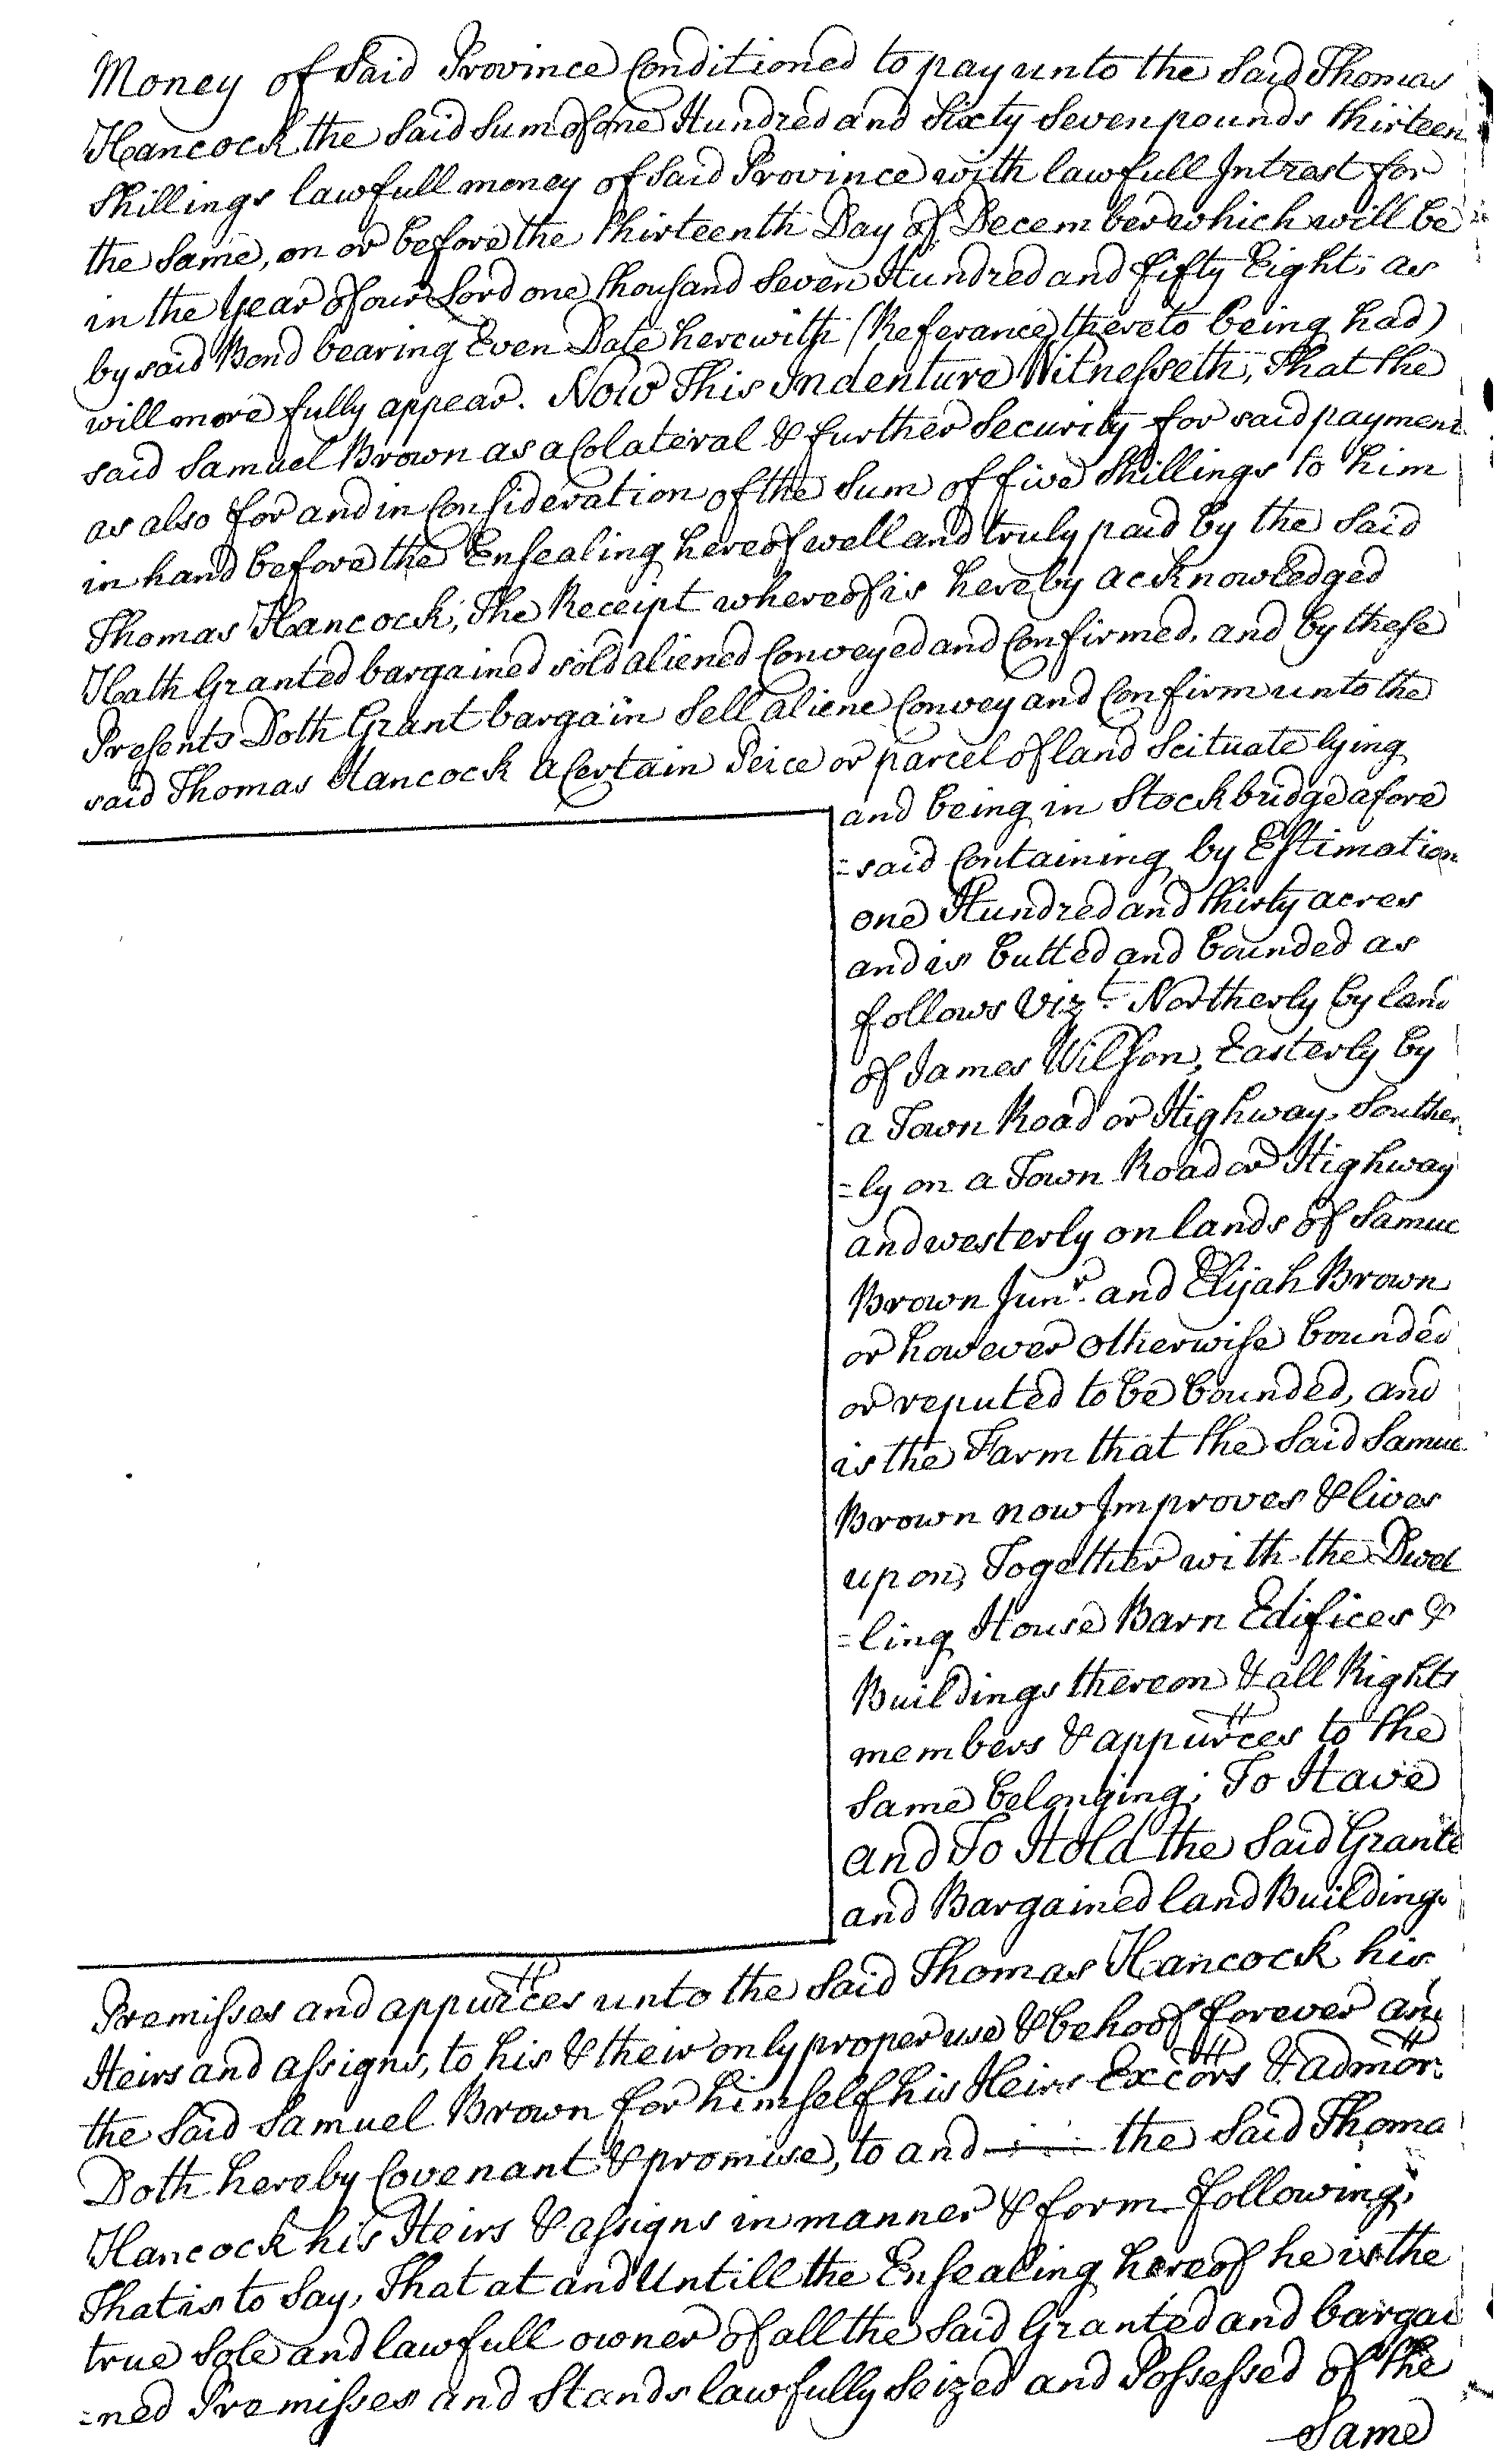 Money of Said Province Conditioned to pay unto the Said Thomas
Hancock the Said Sum of one Hundred and Sixty Seven pounds thirteen
Shillings lawfull money of Said Province with lawfull Intrast for
the Same, on or before the thirteenth Day of December which will be
in the Year of our Lord one thousand Seven Hundred and fifty Eight; as
by said Bond bearing Even Date herewith (Referance thereto being had)
will more fully appear. Now This Indenture Witnesseth, That the
said Samuel Brown as a Colateral & further Security for said payment
as also for and in Consideration of the Sum of five Shillings to him
in hand before the Ensealing hereof well and truly paid by the Said
Thomas Hancock, The Receipt whereof is hereby acknowledged
Hath Granted bargained sold aliened Conveyed and Confirmed, and by these
Presents Doth Grant bargain Sell aliene Convey and Confirm unto the
said Thomas Hancock a Certain Peice or parcel of land Scituate lying
and being in Stockbridge afore
=said Containing by Estimation
one Hundred and thirty acres
and is butted and bounded as
follows Vizt. Northerly by land
of James Wilson, Easterly by
a Town Road or Highway, Souther
=ly on a Town Road or Highway
and westerly on lands of Samue
Brown Junr. and Elijah Brown
or however otherwise bounded
or reputed to be bounded, and
is the Farm that the Said Samue
Brown now Improves & lives
upon, Together with the Dwel
=ling House Barn Edifices &
Buildings thereon & all Rights
members & appurces to the
Same belonging; To Have
and To Hold the Said Grante
and Bargained land Buildings
Premisses and appurces unto the Said Thomas Hancock his
Heirs and assigns, to his & their only proper use & behoof forever and
the Said Samuel Brown for himself his Heirs Excors & admors
Doth hereby Covenant & promise, to and the Said Thoma
Hancock his Heirs & assigns in manner & form following,
That is to Say, That at and Untill the Ensealing hereof he is the
true Sole and lawfull owner of all the Said Granted and bargai
=ned Premisses and Stands lawfully Seized and Possessed of the
Same